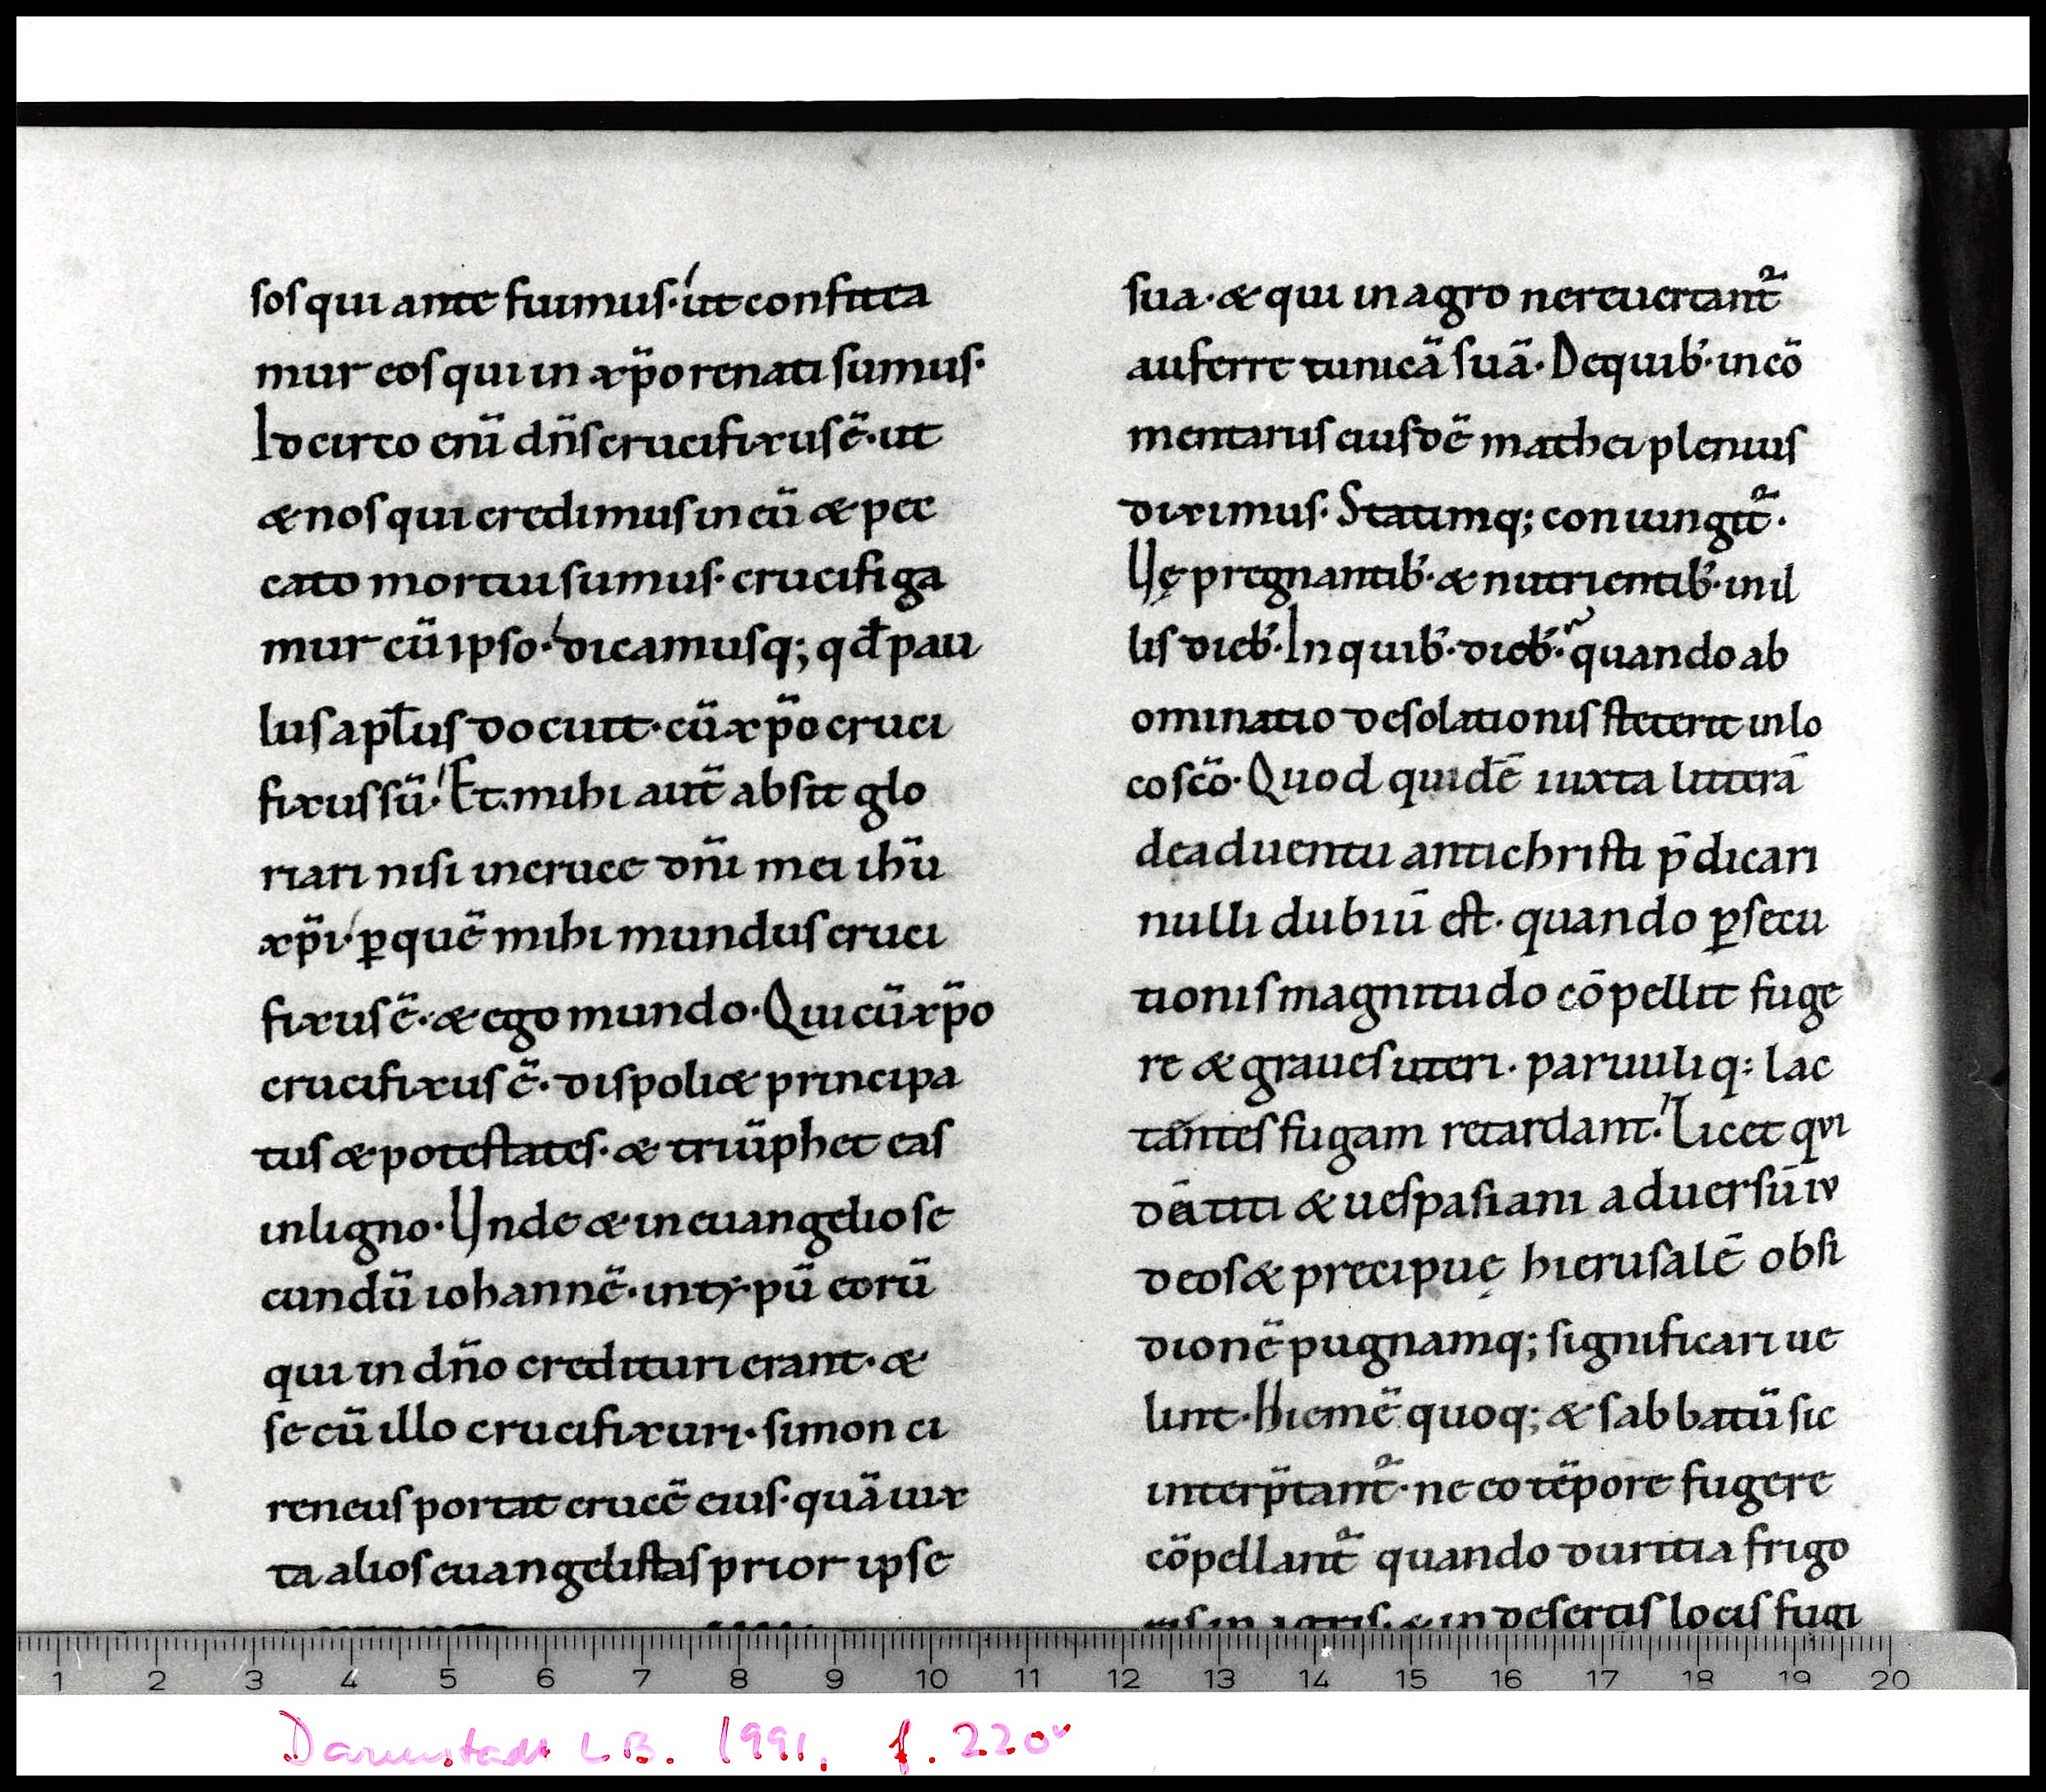 sos qui ante fuimus· ut confitea
mur eos qui in xp̄o renati sumus·
Idcirco enī dn̄s crucifixus ē· ut
& nos qui credimus in eū & pec
cato mortui sumus· crucifiga
mur cū ipso· dicamusq; qđ pau
lus apl̄us docuit· cū xp̄o cruci
fixus sū· Et mihi aut̄ absit glo
riari nisi in cruce dn̄i mei ih̄u
xp̄i· ꝑ quē mihi mundus cruci
fixus ē· & ego mundo· Qui cū xp̄o
crucifixus ē· dispoli& principa
tus & potestates· & triūphet eas
in ligno· Unde & in euangelio se
cundū iohannē· in ty·pū eorū
qui in dn̄o credituri erant· &
se cū illo crucifixuri· simon ci
reneus portat crucē eius· quā iux
ta alios euangelistas prior ipse
sua· & qui in agro ne reuertant᷑
auferre tunicā suā· De quib· in cō
mentariis eiusdē mathei plenius
diximus· Statimq; conuingit᷑·
Uę pregnantib· & nutrientib· in il
lis dieb· In quib· dieb· quando ab
ominatio desolationis steterit in lo
co sc̄o· Quod quidē iuxta litterā
de aduentu antichristi p̄dicari
nulli dubiū est· quando ꝑsecu
tionis magnitudo cōpellit fuge
re & graues uteri· paruuliq: lac
tantes fugam retardant· Licet qui
dā titi & uespasiani aduersū iu
deos & precipuę hierusalē obsi
dionē pugnamq; significari ue
lint· Hiemē quoq; & sabbatū sic
interp̄tant᷑· ne eo tēpore fugere
cōpellant᷑ quando duritia frigo
ris in agris· & in desertis locis fugi
1 2 3 4 5 6 7 8 9 10 11 12 13 14 15 16 17 18 19 20
Darmstadt LB. 1991, f. 220v